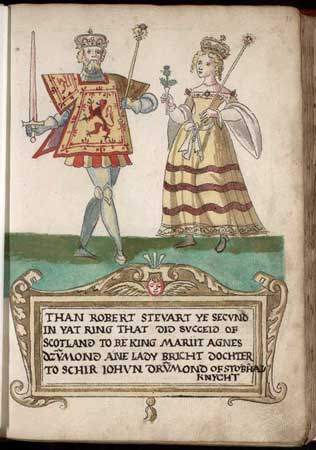 THAN ROBERT STEVART YE SECVND
IN YAT RING THAT DID SVCCEID OF
SCOTLAND TO BE KING MARIIT AGNES
DRVMOND AINE LADY BRICHT DOCHTER
TO SCHIR IOHVN DRVMOND OF STOBHALL
KNYCHT